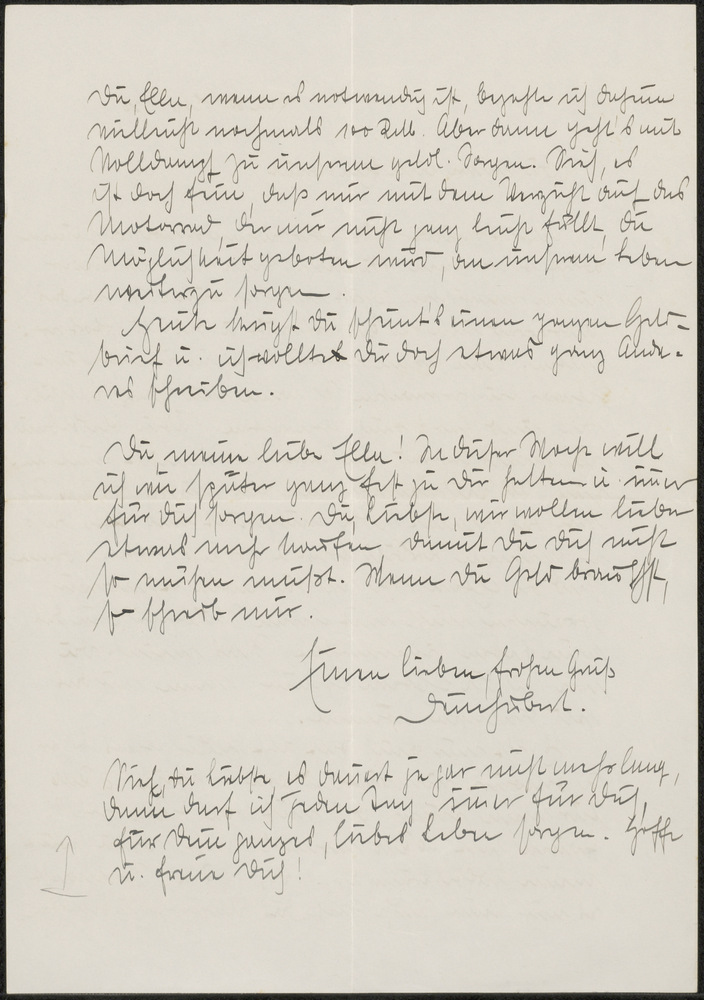 Du, Ella, wenn es notwendig ist, bezahle ich daheim
vielleicht nochmals 100 RM. Aber dann geht's mit
Volldampf zu unserem geldl. Sorgen. Sieh, es
ist doch fein, daß mir mit dem Verzicht auf das
Motorrad, der mir nicht ganz leicht fällt, die
Möglichkeit geboten wird, an unserem Leben
weiterzu sorgen.
Heute kriegst Du scheint's einen ganzen Geld-
brief u. ich wollte Dir doch etwas ganz Ande-
res schreiben.
Du, meine liebe Ella! In dieser Woche will
ich wie später ganz fest zu Dir halten u. immer
für Dich sorgen. Du, Liebste, wir wollen lieber
etwas mehr kaufen, damit Du Dich nicht
so mühen mußt. Wenn Du Geld brauchst,
so schreib mir.
Einen lieben, frohen Gruß
Dein Hubert.
Sieh, Du Liebste, es dauert ja gar nicht mehr lang,
dann darf ich jeden Tag immer für Dich,
für Dein ganzes, liebes Leben sorgen. Hoffe
u. freue Dich!